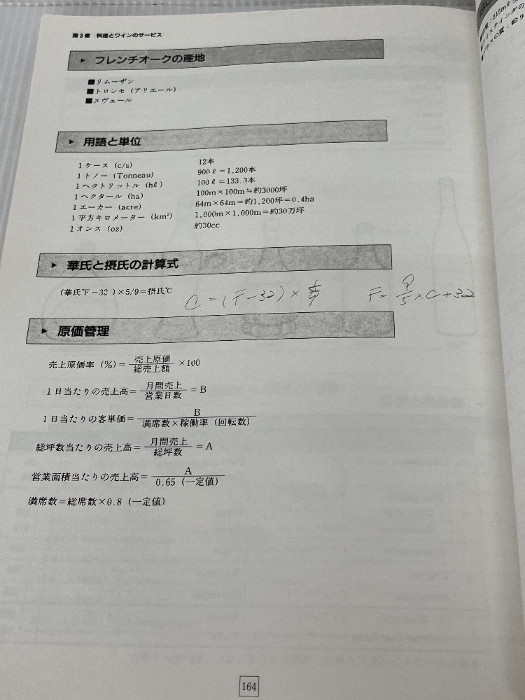 第3章 料理とワインのサービス
▶ フレンチオークの産地
■リムーザン
■トロンセ（アリエール）
■ヌヴェール
▶ 用語と単位
1ケース（c/s） 12本
1トノー（Tonneau） 900ℓ＝1,200本
1ヘクトリットル（hℓ） 100ℓ＝133.3本
1ヘクタール（ha） 100m×100m＝約3000坪
1エーカー（acre） 64m×64m＝約1,200坪＝0.4ha
1平方キロメーター（km²） 1,000m×1,000m＝約30万坪
1オンス（oz） 約30cc
▶ 華氏と摂氏の計算式
（華氏℉－32）×5/9＝摂氏℃ C=(F-32)×5/9 F=9/5×C+32
▶ 原価管理
売上原価率（%）＝売上原価/総売上額×100
1日当たりの売上高＝月間売上/営業日数＝B
1日当たりの客単価＝B/満席数×稼働率（回転数）
総坪数当たりの売上高＝月間売上/総坪数＝A
営業面積当たりの売上高＝A/0.65（一定値）
満席数＝総席数×0.8（一定値）
164